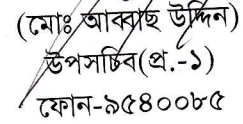 (মোঃ আব্বাছ উদ্দিন)
উপসচিব(প্র.-১)
ফোন-৯৫৪০০৮৫